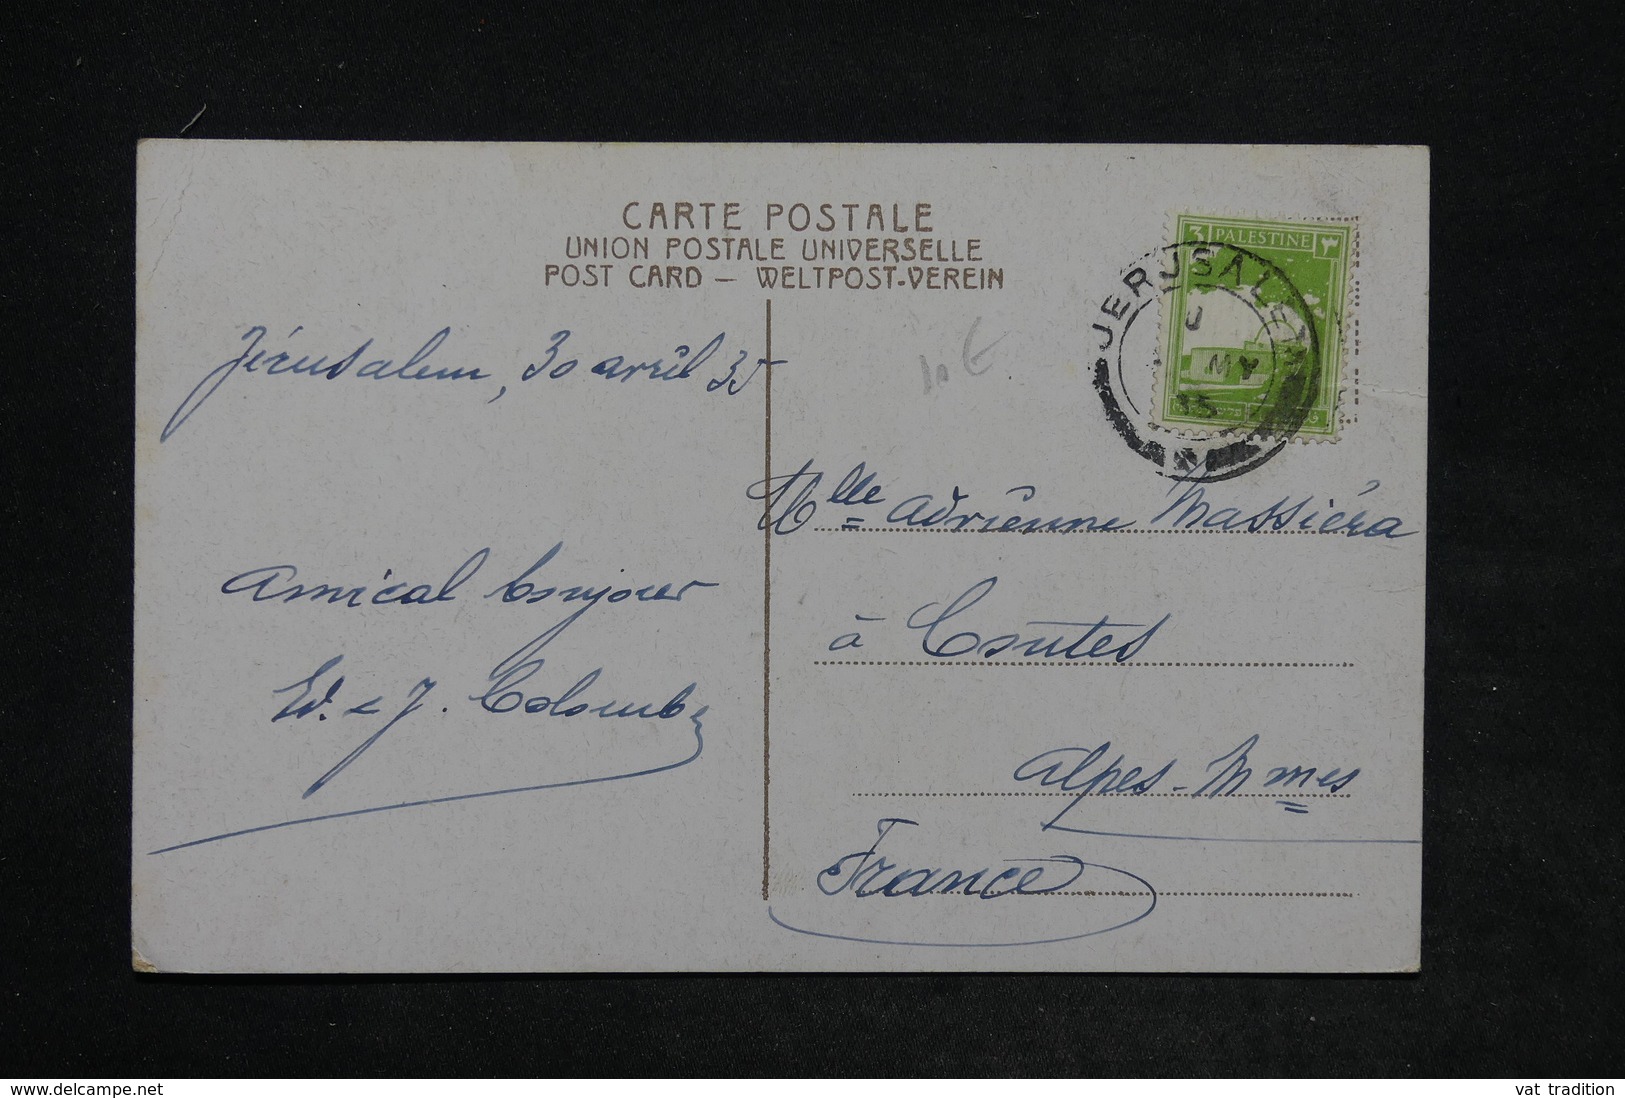 CARTE POSTALE
UNION POSTALE UNIVERSELLE
POST CARD — WELTPOST-VEREIN
3 PALESTINE ٣
JERUSALEM
MY
35
Jérusalem, 30 avril 35
10 €
Mlle Adrienne Massiéra
Amical bonjour
à Contes
Ed. & J. Colomb
Alpes-Mmes
France
www.delcampe.net
vat tradition